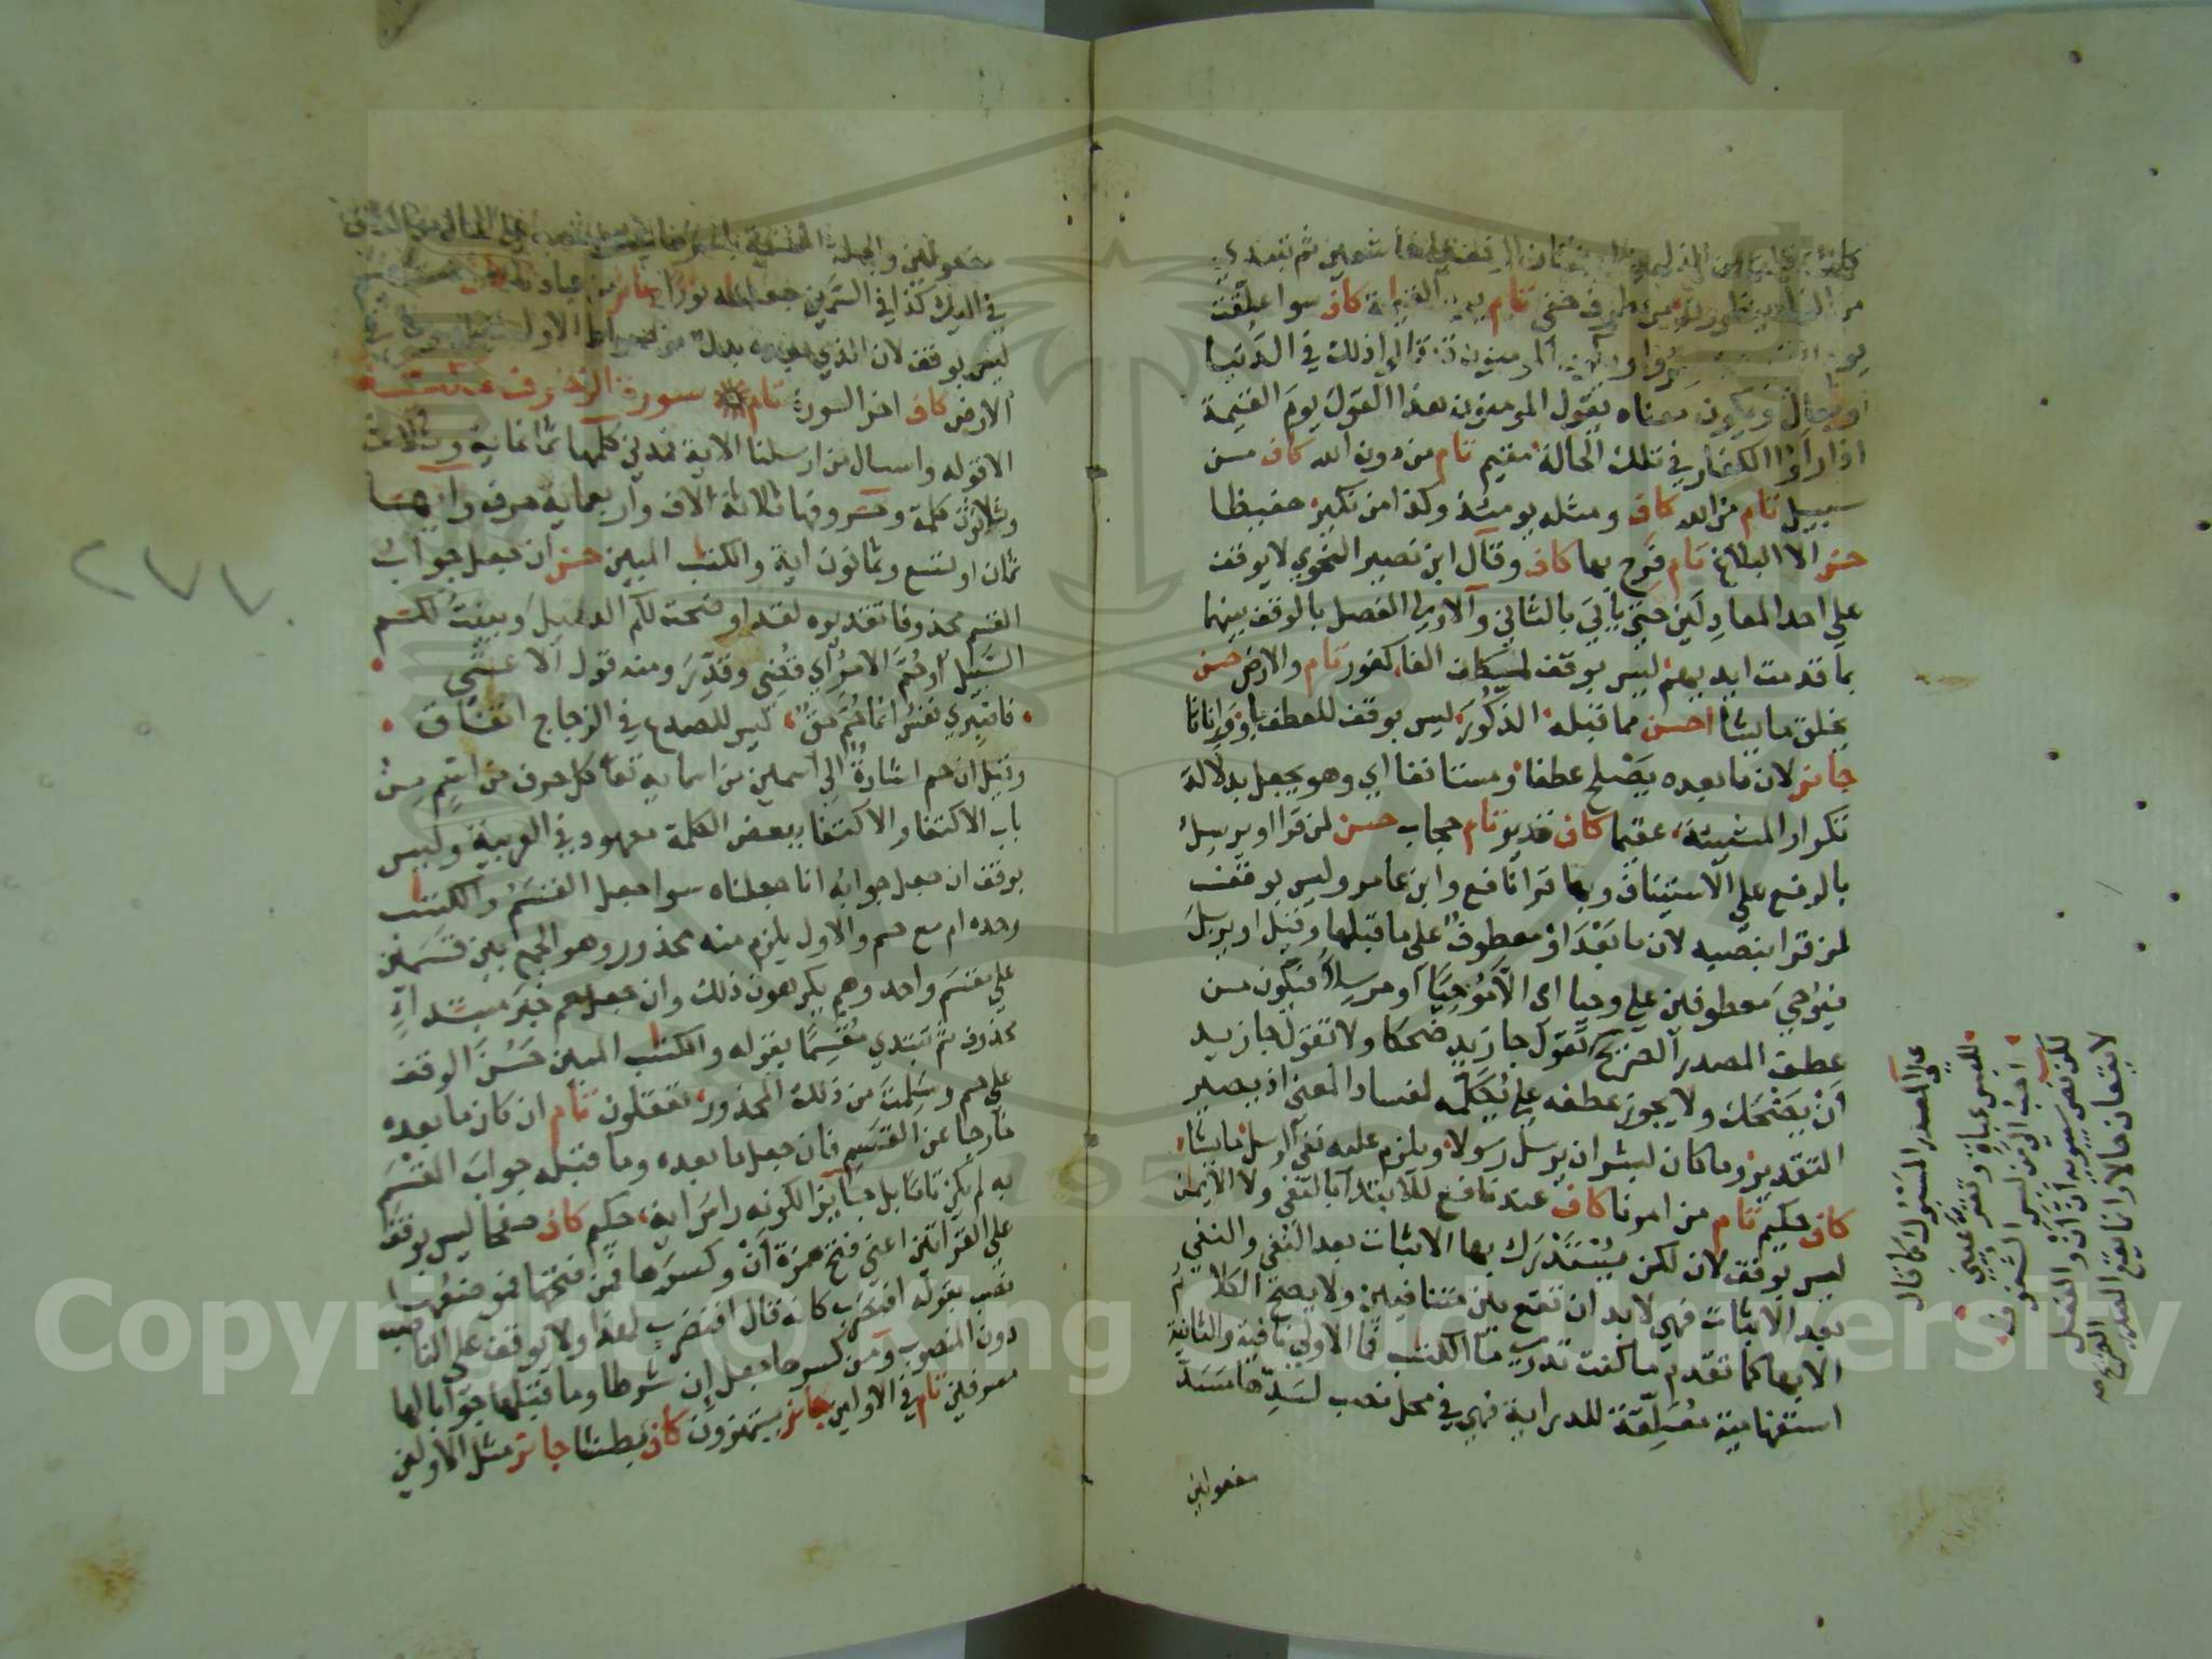 من طرف خفي تام يوم القيمة كاف سوا علقت
المومنون ذلك في الدنيا
او يقال ويكون معناه يقول المومنون هذا القول يوم القيمة
اذا راوا الكفار في تلك الحالة مقيم تام من دون الله كاف من
سبيل تام من الله كاف ومثله يومئذ وكذا من نكير حفيظا
حسن الا البلاغ تام فرح بها كاف وقال ابن نصير النحوي لا يوقف
على احد المعادلين حتى ياتي بالثاني والاولى الفصل بالوقف بينهما
بما قدمت ايديهم ليس بوقف لمكان الفا كفور تام والارض حسن
يخلق ما يشا احسن مما قبله الذكور ليس بوقف للعطف باو واناثا
جائز لان ما بعده يصلح عطفا ومستانفا اي وهو يجعل بدلالة
تكرار المشيئة عقيما كاف قدير تام حجاب حسن لمن قرا او يرسل
بالرفع على الاستيناف وبها قرا نافع وابن عامر وليس بوقف
لمن قرا بنصبه لان ما بعد او معطوف على ما قبلها وقيل او يرسل
فيوحي معطوفين على وحيا اي الا موحيا او مرسلا فيكون من
عطف المصدر الصريح تقول جا زيد ضحكا ولا تقول جا زيد
ان يضحك ولا يجوز عطفه على يكلمه لفساد المعنى اذ يصير
التقدير وما كان لبشر ان يرسل رسولا ويلزم عليه نفي ارسل ما يشا
كاف حكيم تام من امرنا كاف عند نافع للابتدا بالنفي ولا الايمان
ليس بوقف لان لكن يستدرك بها الاثبات بعد النفي والنفي
بعد الاثبات فهي لابد ان تقع بين متنافيين ولا يصح الكلام
الا بها كما تقدم ما كنت تدري ما الكتب فما الاولى نافية والثانية
استفهامية معلقة للدراية فهي في محل نصب لسدها مسد
مفعولين
على المصدر المسبوك كما قال
للبس عباة وتقر عيني
احب الي من لبس الشفوف
لكن نص سيبويه ان ان والفعل
لا يقعان حالا وانما يقع المصدر
الصريح صح
مفعولين والجملة المنفية باسرها في محل نصب على الحال من الكاف
في اليك كذا في السمين جعلناه نورا جائز من عبادنا
ليس بوقف لان الذي بعده بدل من صراط الاول
الارض كاف اخر السورة تام سورة الزخرف مكية
الا قوله واسال من ارسلنا الاية فمدني كلمها ثمانماية وثلاث
وثلاثون كلمة وحروفها ثلاثة الاف واربعماية حرف وايها
ثمان او تسع وثمانون اية والكتب المبين حسن ان جعل جواب
القسم محذوفا تقديره لقد اوضحت لكم الدليل وبينت لكم
السبيل او حم الامر اي قضي وقدر ومنه قول الاعشى
فاصبري نفس انما حم حق ليس للصدع في الزجاج اتفاق
وقيل ان حم اشارة الى اسمين من اسمايه تعا كل حرف من اسم من
باب الاكتفا والاكتفا ببعض الكلمة معهود في العربية وليس
بوقف ان جعل جوابه انا جعلناه سوا جعل القسم والكتب
وحده ام مع حم والاول يلزم منه محذور وهو الجمع بين قسمين
على مقسم واحد وهم يكرهون ذلك وان جعل حم خبر مبتداء
محذوف ثم تبتدي مقسما بقوله والكتب المبين حسن الوقف
على حم وسلمت من ذلك المحذور تعقلون تام ان كان ما بعده
خارجا عن القسم فان جعل ما بعده وما قبله جواب القسم
به لم يكن تاما بل جائزا لكونه راس اية حكيم كاف صفحا ليس بوقف
على القراتين اعني فتح همزة ان وكسرها فمن فتحها فموضعها
نصب بقوله افنضرب كانه قال افنضرب لهذا ولا يوقف على الناصب
دون المنصوب ومن كسرها جعل ان شرطا وما قبلها جوابا لها
مسرفين تام في الاولين جائز يستهزؤن كاف بطشا جائز مثل الاولين
٢٧٧
Copyright © King Saud University